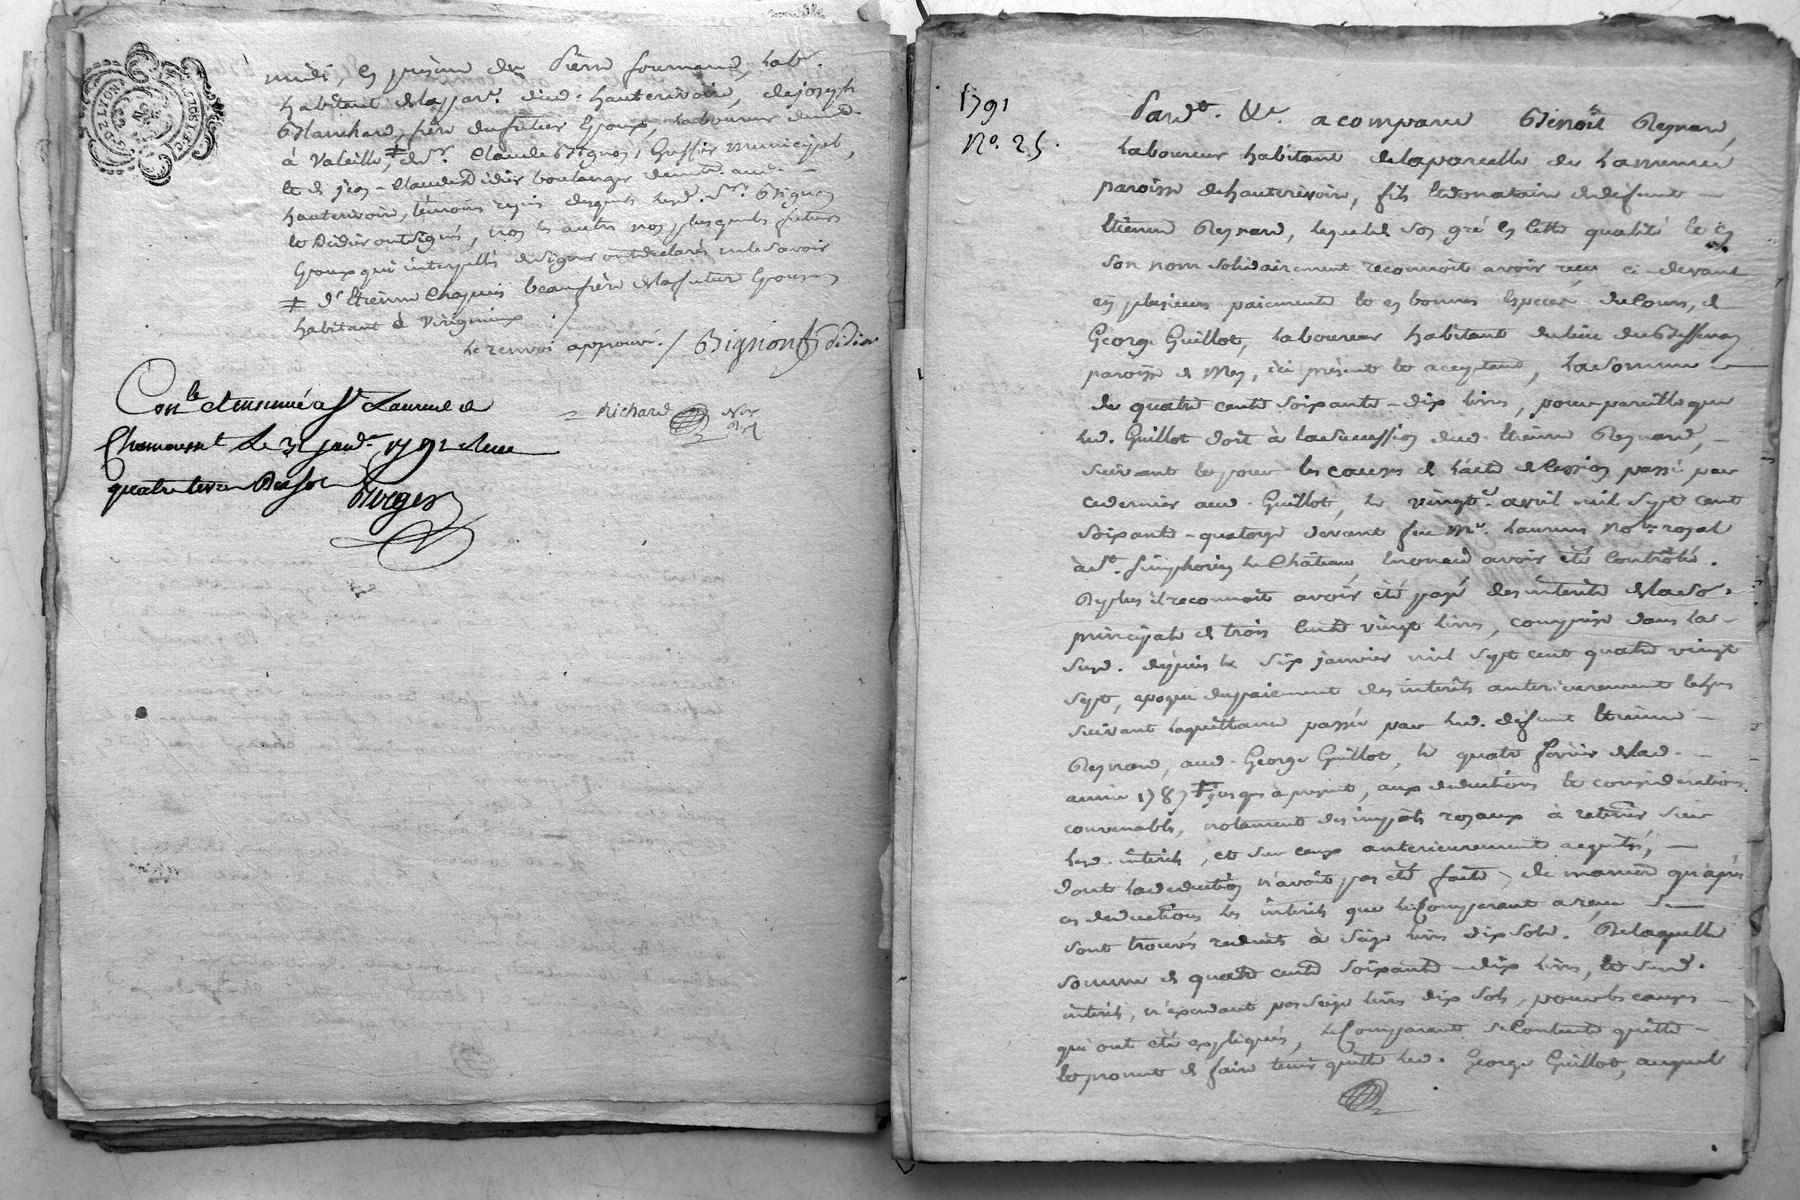 midi, en présence de Pierre fournand, lab.
habitant de la par. dud. hauterivoire, de joseph
Blanchard, frère du futur Epoux, laboureur demt.
à Valeille, ‡ de Sr. Claude Bignon, Greffier municipal,
et de jean-Claude Didier boulanger demt. aud.
hauterivoire, témoins requis desquels lesd. Srs. Bignon
et Didier ont signé, non les autres non plus que les futurs
Epoux qui interpellés de signer ont déclaré ne le savoir
‡ d'Etienne Chapuis beaufrère de la future Epouse
habitant à Virigneux ./
le renvoi approuvé. / Bignon didier
= Richard Nre
Con.le et insinué a St Laurent de
Chamousset Le 31 janv. 1791 Reçu
quatre livres Dix sols
Burger
1791
No. 25.
Pardt. &c. a comparu Benoît Reynard,
laboureur habitant de la parcelle de
paroisse de hauterivoire, fils et donataire de défunt
Etienne Reynard, lequel de son gré en cette qualité et en
son nom solidairement reconnoit avoir reçu ci-devant
en plusieurs paiements et en bonnes Especes du Cours, de
George Guillot, laboureur habitant du lieu du
paroisse de Mey, ici présent et acceptant, la somme
de quatre cents soixante-dix livres, pour pareille que
led. Guillot doit à la succession dud. Etienne Reynard,
suivant et pour les causes de l'acte de Cession passé par
ce dernier aud. Guillot, le vingt avril mil sept cent
soixante-quatorze devant feu Me. Laurens Notre. royal
à St. Simphorien le Château Enoncé avoir été Contrôlé.
De plus il reconnoit avoir été payé des intérêts de la so.
principale de trois cents vingt livres, comprise dans la
susd. depuis le six janvier mil sept cent quatre vingt
sept, epoque du paiement des intérêts anterieurement echus
suivant la quittance passée par led. défunt Etienne
Reynard, aud. George Guillot, le quatre fevrier de lad.
année 1787 ‡ jusques à present, aux deductions et considerations
convenables, notament des impots royaux à retenir sur
lesd. intérêts, et sur ceux anterieurement acquités,
dont la deduction n'avoit pas été faite, de maniere qu'après
ces deductions les intérêts que le Comparant a reçu se
sont trouvés reduits à seize livres dix sols. De laquelle
somme de quatre cents soixante-dix livres, et susd.
intérêts, n'excedant pas seize livres dix sols, pour les causes
qui ont été expliquées, le Comparant se Contente quitte
et promet de faire tenir quitte led. George Guillot, auquel